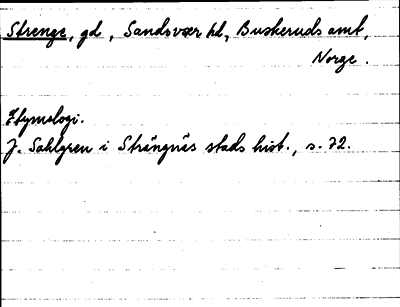 Strenge, gd, Sandsvær hd, Buskeruds amt,
Norge.
Etymologi.
J. Sahlgren i Strängnäs stads hist., s. 72.